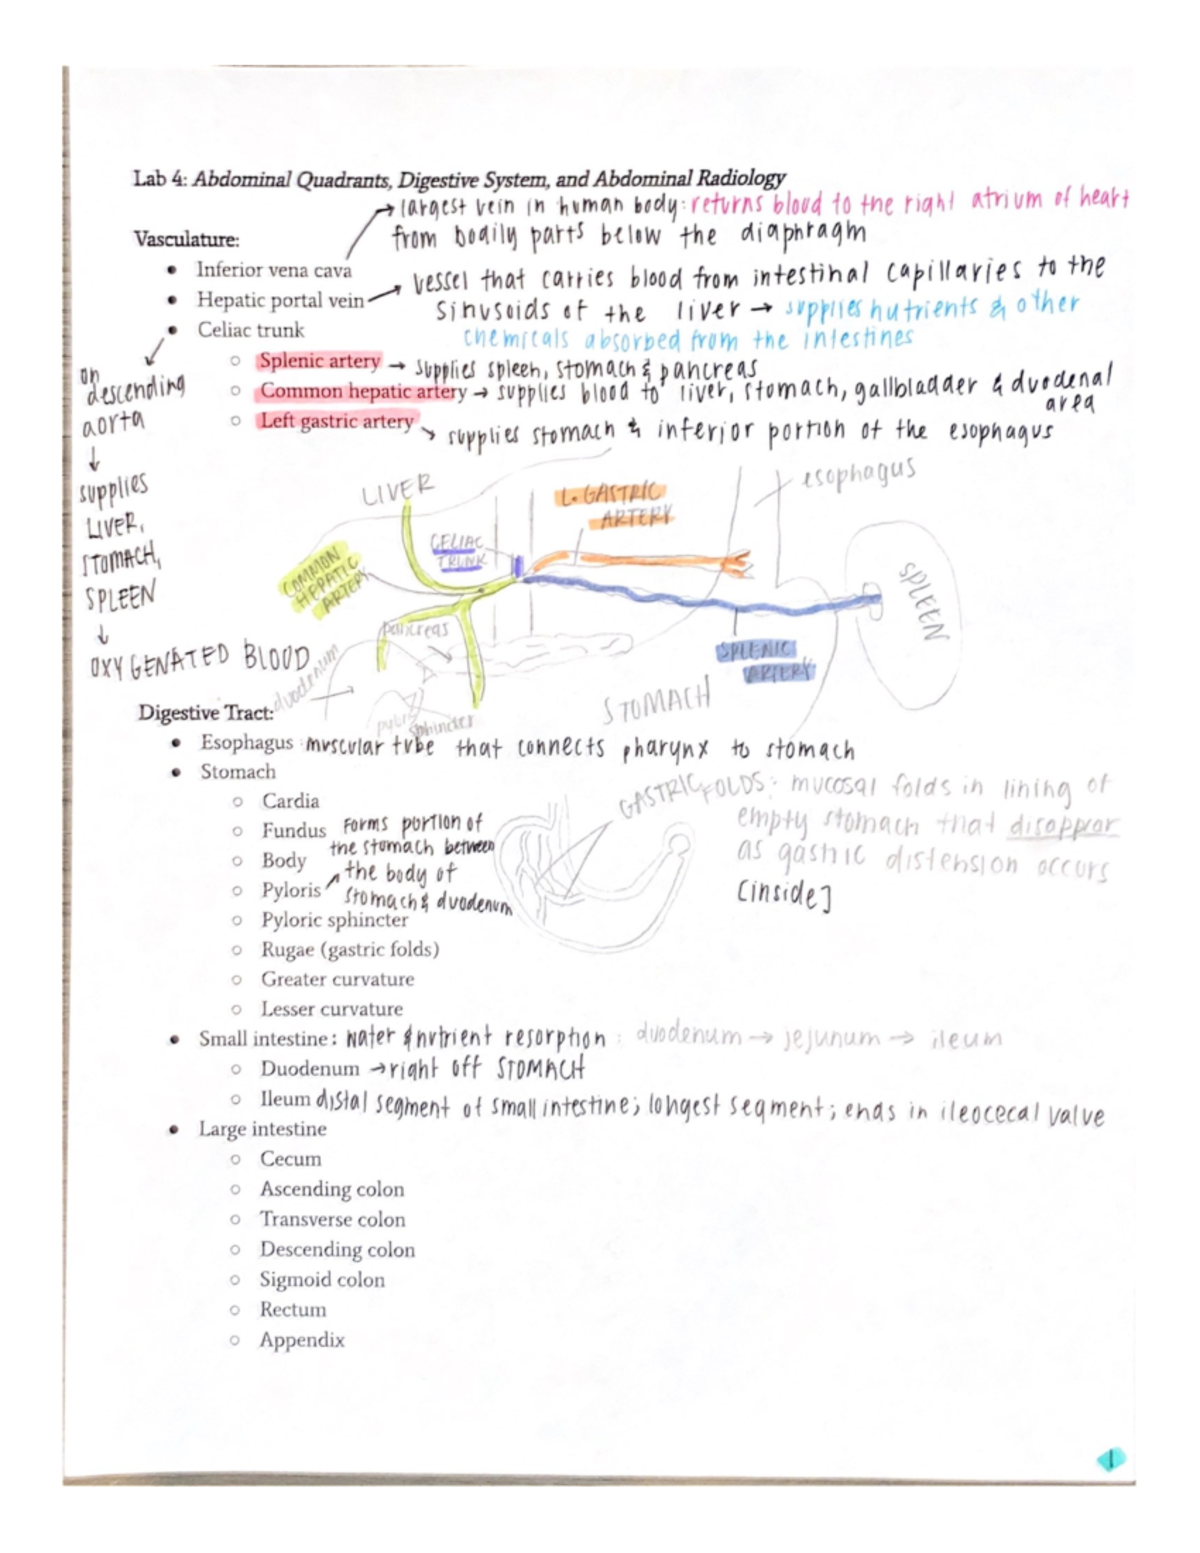 Lab 4: Abdominal Quadrants, Digestive System, and Abdominal Radiology
largest vein in human body: returns blood to the right atrium of heart
from bodily parts below the diaphragm
Vasculature:
• Inferior vena cava
vessel that carries blood from intestinal capillaries to the
• Hepatic portal vein
sinusoids of the liver → supplies nutrients & other
chemicals absorbed from the intestines
• Celiac trunk
on
descending
aorta
↓
supplies
LIVER,
STOMACH,
SPLEEN
↓
OXYGENATED BLOOD
○ Splenic artery → supplies spleen, stomach & pancreas
○ Common hepatic artery → supplies blood to liver, stomach, gallbladder & duodenal
area
○ Left gastric artery → supplies stomach & inferior portion of the esophagus
LIVER
L. GASTRIC
ARTERY
esophagus
CELIAC
TRUNK
COMMON
HEPATIC
ARTERY
SPLEEN
pancreas
SPLENIC
ARTERY
duodenum
STOMACH
sphincter
Digestive Tract:
• Esophagus muscular tube that connects pharynx to stomach
• Stomach
GASTRIC FOLDS: mucosal folds in lining of
empty stomach that disappear
as gastric distension occurs
[inside]
○ Cardia
○ Fundus
○ Body
○ Pyloris
forms portion of
the stomach between
the body of
stomach & duodenum
○ Pyloric sphincter
○ Rugae (gastric folds)
○ Greater curvature
○ Lesser curvature
• Small intestine: water & nutrient resorption : duodenum → jejunum → ileum
○ Duodenum → right off STOMACH
○ Ileum distal segment of small intestine; longest segment; ends in ileocecal valve
• Large intestine
○ Cecum
○ Ascending colon
○ Transverse colon
○ Descending colon
○ Sigmoid colon
○ Rectum
○ Appendix
1